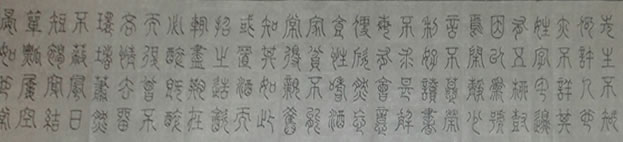 先生不知
何許人也
亦不詳其
姓字宅邊
有五柳樹
因以為號
焉閑靜少
言不慕榮
利好讀書
不求甚解
每有會意
便欣然忘
食性嗜酒
家貧不能
常得親舊
知其如此
或置酒而
招之造飲
輒盡期在
必醉既醉
而退曾不
吝情去留
環堵蕭然
不蔽風日
短褐穿結
簞瓢屢空
晏如也常